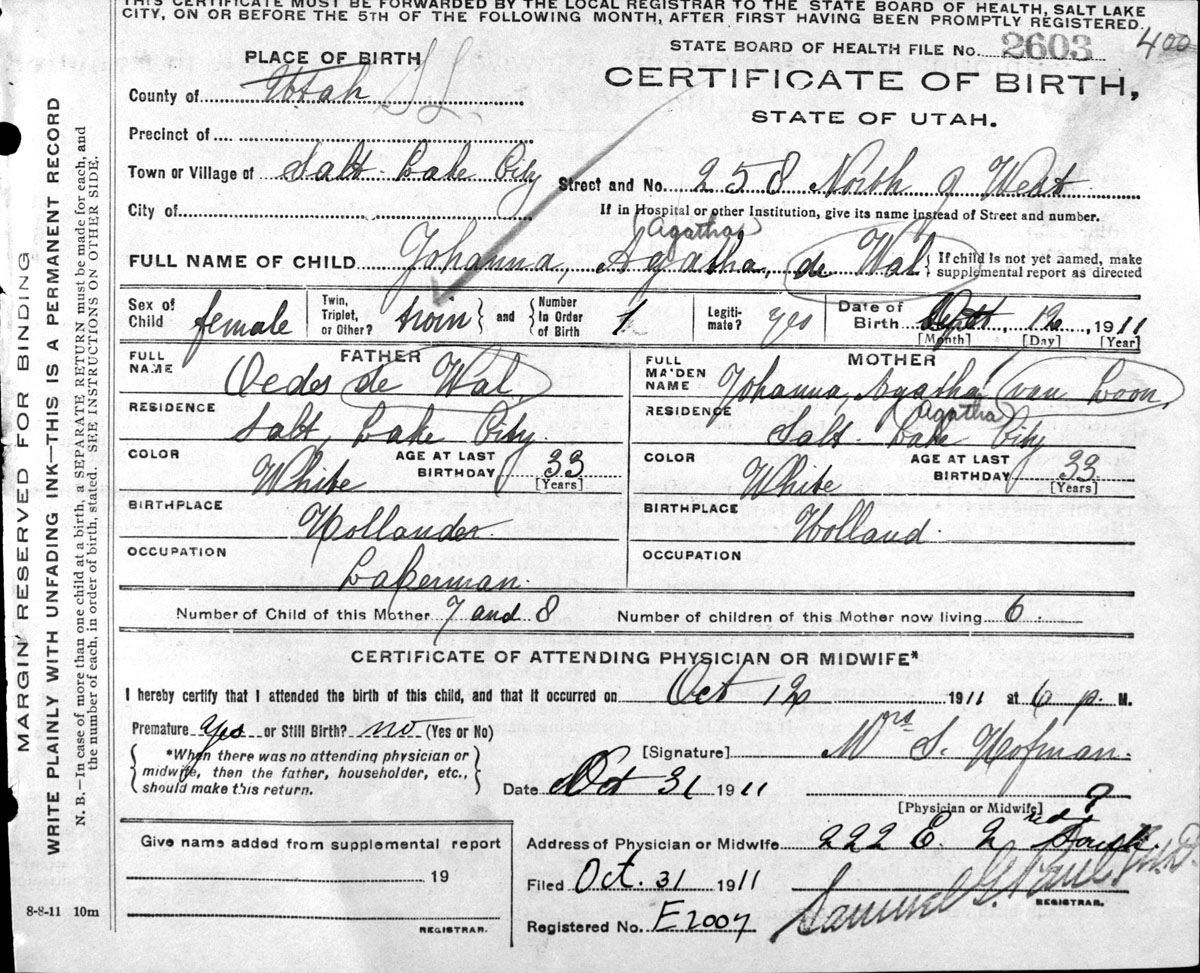 THIS CERTIFICATE MUST BE FORWARDED BY THE LOCAL REGISTRAR TO THE STATE BOARD OF HEALTH, SALT LAKE
CITY, ON OR BEFORE THE 5TH OF THE FOLLOWING MONTH, AFTER FIRST HAVING BEEN PROMPTLY REGISTERED.
400
PLACE OF BIRTH
STATE BOARD OF HEALTH FILE No. 2603
County of Utah S L
CERTIFICATE OF BIRTH,
STATE OF UTAH.
Precinct of
Town or Village of Salt Lake City
Street and No. 258 North 9 West
City of
If in Hospital or other Institution, give its name instead of Street and number.
(Agatha)
FULL NAME OF CHILD Johanna, Agatha, de Wal
{ If child is not yet named, make
supplemental report as directed
Sex of Child female
Twin, Triplet, or Other? twin } and { Number In Order of Birth 1
Legiti-mate? yes
Date of Birth Oct 12, 1911
[Month] [Day] [Year]
FATHER
FULL NAME Oedes de Wal
RESIDENCE
Salt Lake City
COLOR White
AGE AT LAST BIRTHDAY 33
[Years]
BIRTHPLACE
Hollander
OCCUPATION
MOTHER
FULL MAIDEN NAME Johanna Agatha van Loon
(Agatha)
RESIDENCE
Salt Lake City
COLOR White
AGE AT LAST BIRTHDAY 33
[Years]
BIRTHPLACE
Holland
OCCUPATION
Number of Child of this Mother 7 and 8
Number of children of this Mother now living 6
CERTIFICATE OF ATTENDING PHYSICIAN OR MIDWIFE*
I hereby certify that I attended the birth of this child, and that it occurred on Oct 12 1911 at 6 p. M.
Premature yes or Still Birth? no (Yes or No)
{ *When there was no attending physician or
midwife, then the father, householder, etc.,
should make this return. }
[Signature] Mrs S. Hofman.
Date Oct 31 1911
[Physician or Midwife] ?
Give name added from supplemental report
19
REGISTRAR.
8-8-11 10m
Address of Physician or Midwife 222 E. 2nd South.
Filed Oct. 31 1911
Samuel G. Paul M.D.
REGISTRAR.
Registered No. E2007
MARGIN RESERVED FOR BINDING
WRITE PLAINLY WITH UNFADING INK—THIS IS A PERMANENT RECORD
N. B.—In case of more than one child at a birth, a SEPARATE RETURN must be made for each, and
the number of each, in order of birth, stated. SEE INSTRUCTIONS ON OTHER SIDE.